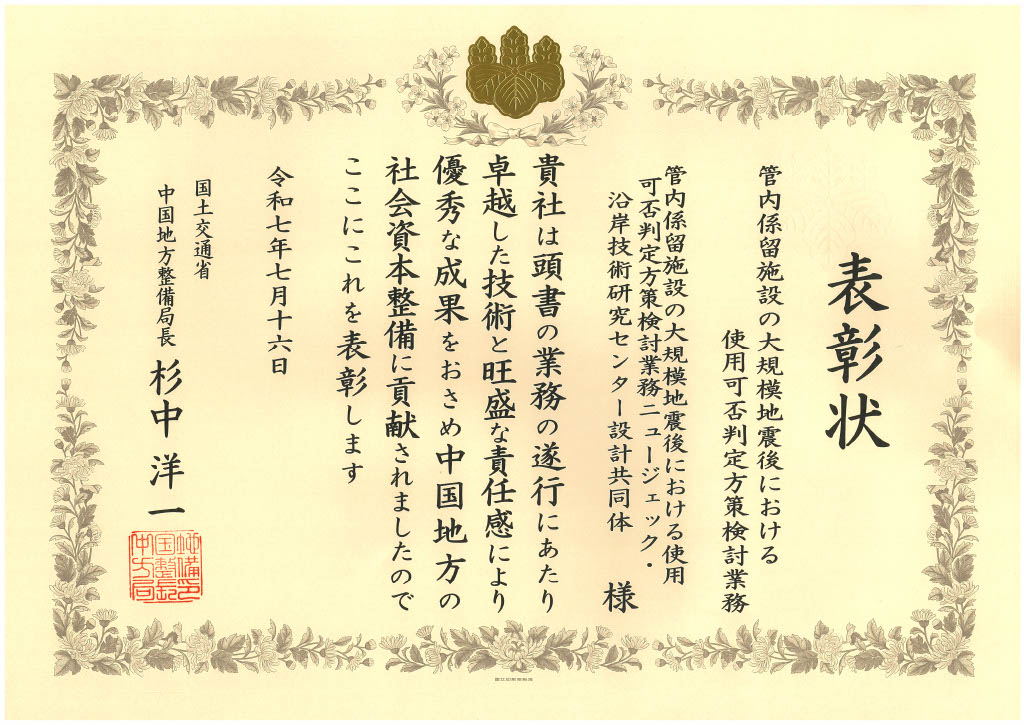 表彰状
管内係留施設の大規模地震後における
使用可否判定方策検討業務
管内係留施設の大規模地震後における使用
可否判定方策検討業務ニュージェック・
沿岸技術研究センター設計共同体 様
貴社は頭書の業務の遂行にあたり
卓越した技術と旺盛な責任感により
優秀な成果をおさめ中国地方の
社会資本整備に貢献されましたので
ここにこれを表彰します
令和七年七月十六日
国土交通省
中国地方整備局長 杉中洋一